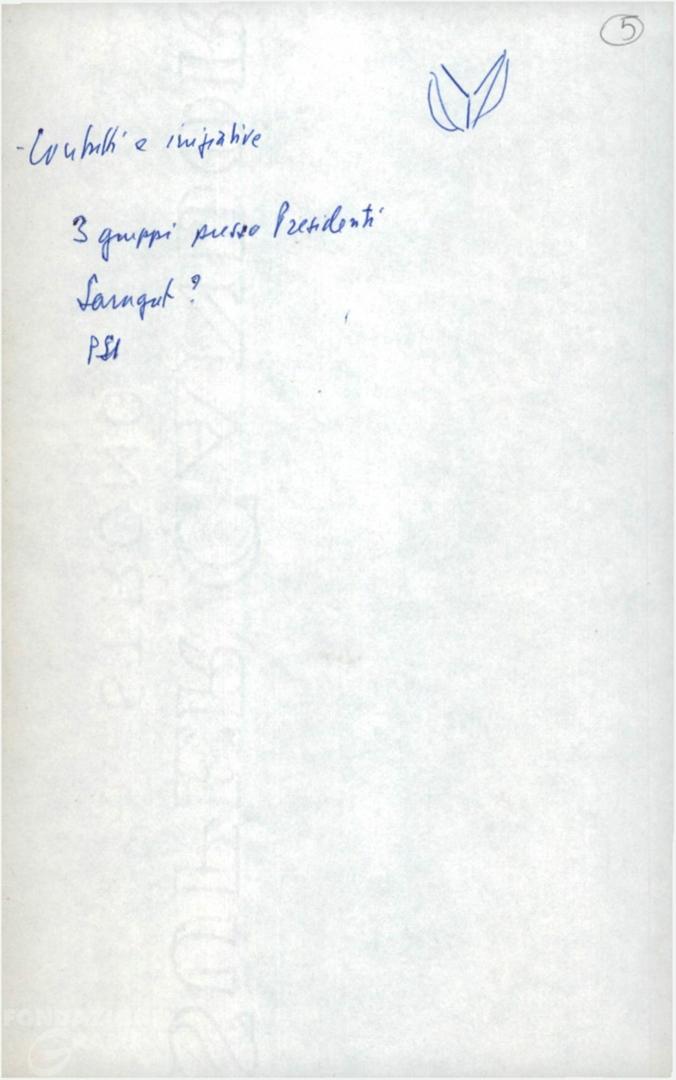 5
- Contatti e iniziative
3 gruppi presso Presidenti
Saragat?
PSI
FONDAZIONE